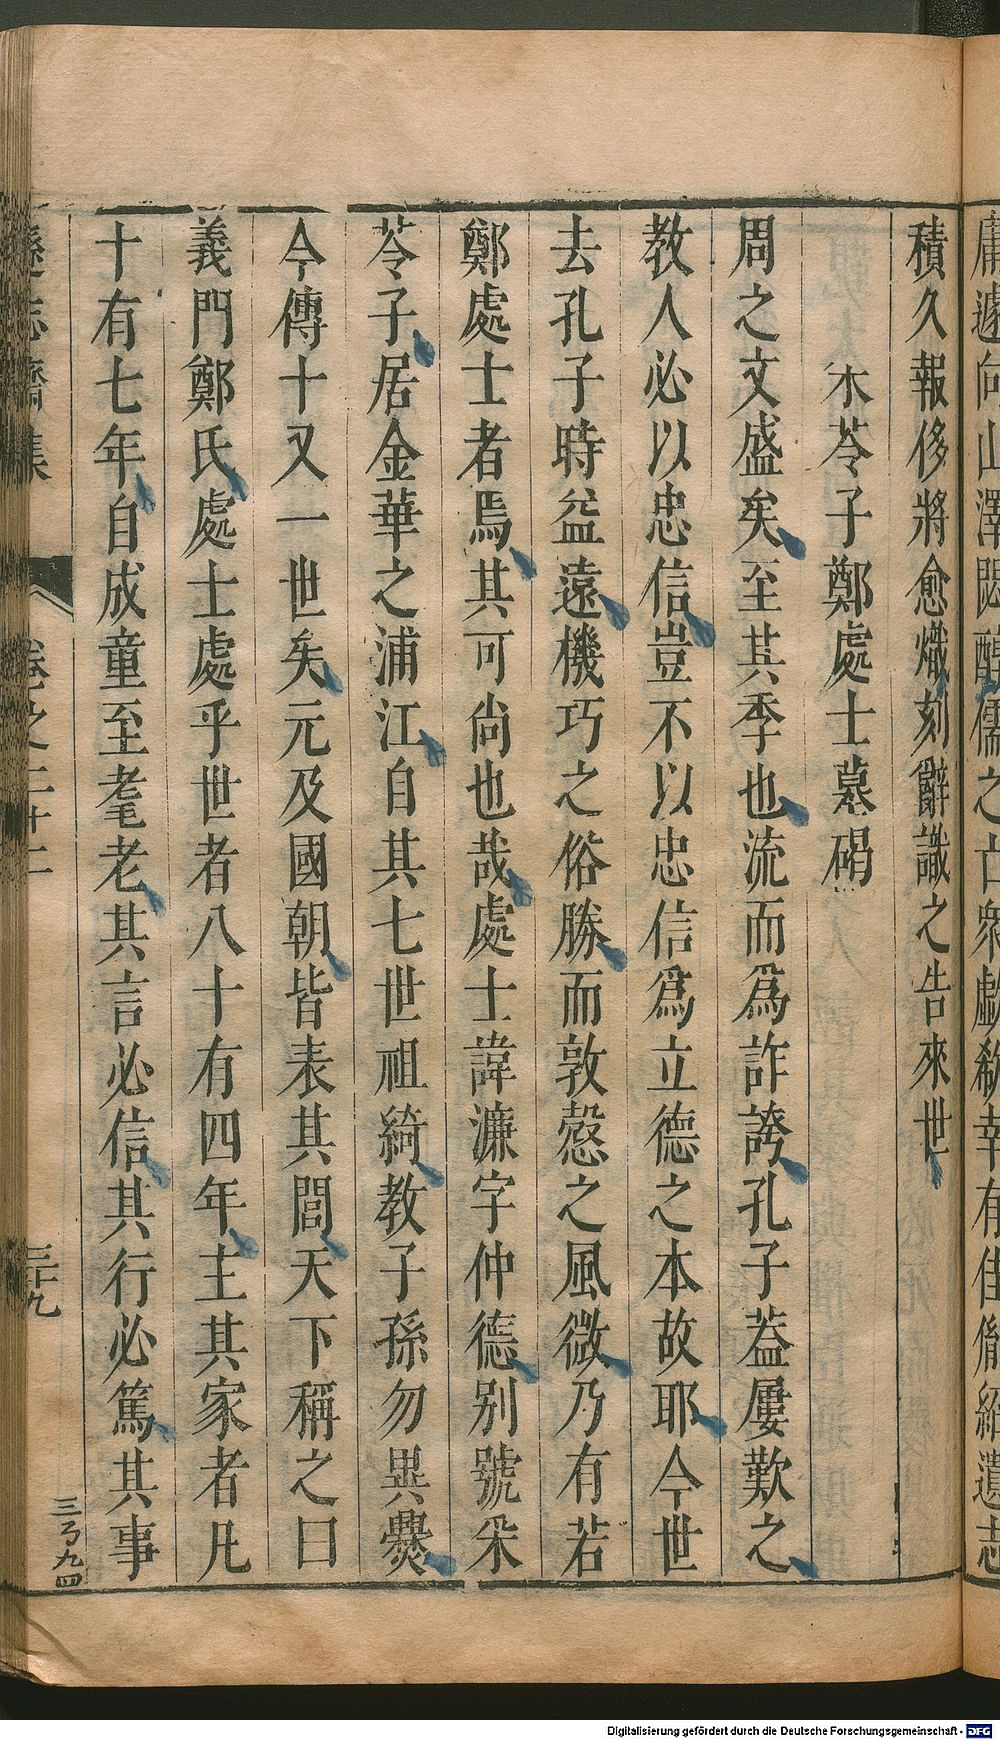 積久報侈將愈熾刻辭識之告來世
采苓子鄭處士墓碣
周之文盛矣至其季也流而爲詐誇孔子葢屢歎之
教人必以忠信豈不以忠信爲立德之本故耶今世
去孔子時益遠機巧之俗勝而敦愨之風微乃有若
鄭處士者焉其可尚也哉處士諱濂字仲德别號采
苓子居金華之浦江自其七世祖綺教子孫勿異爨
今傳十又一世矣元及國朝皆表其閭天下稱之曰
義門鄭氏處士處乎世者八十有四年主其家者凡
十有七年自成童至耄老其言必信其行必篤其事
遜志齋集
卷之二十二
三十九
Digitalisierung gefördert durch die Deutsche Forschungsgemeinschaft - DFG